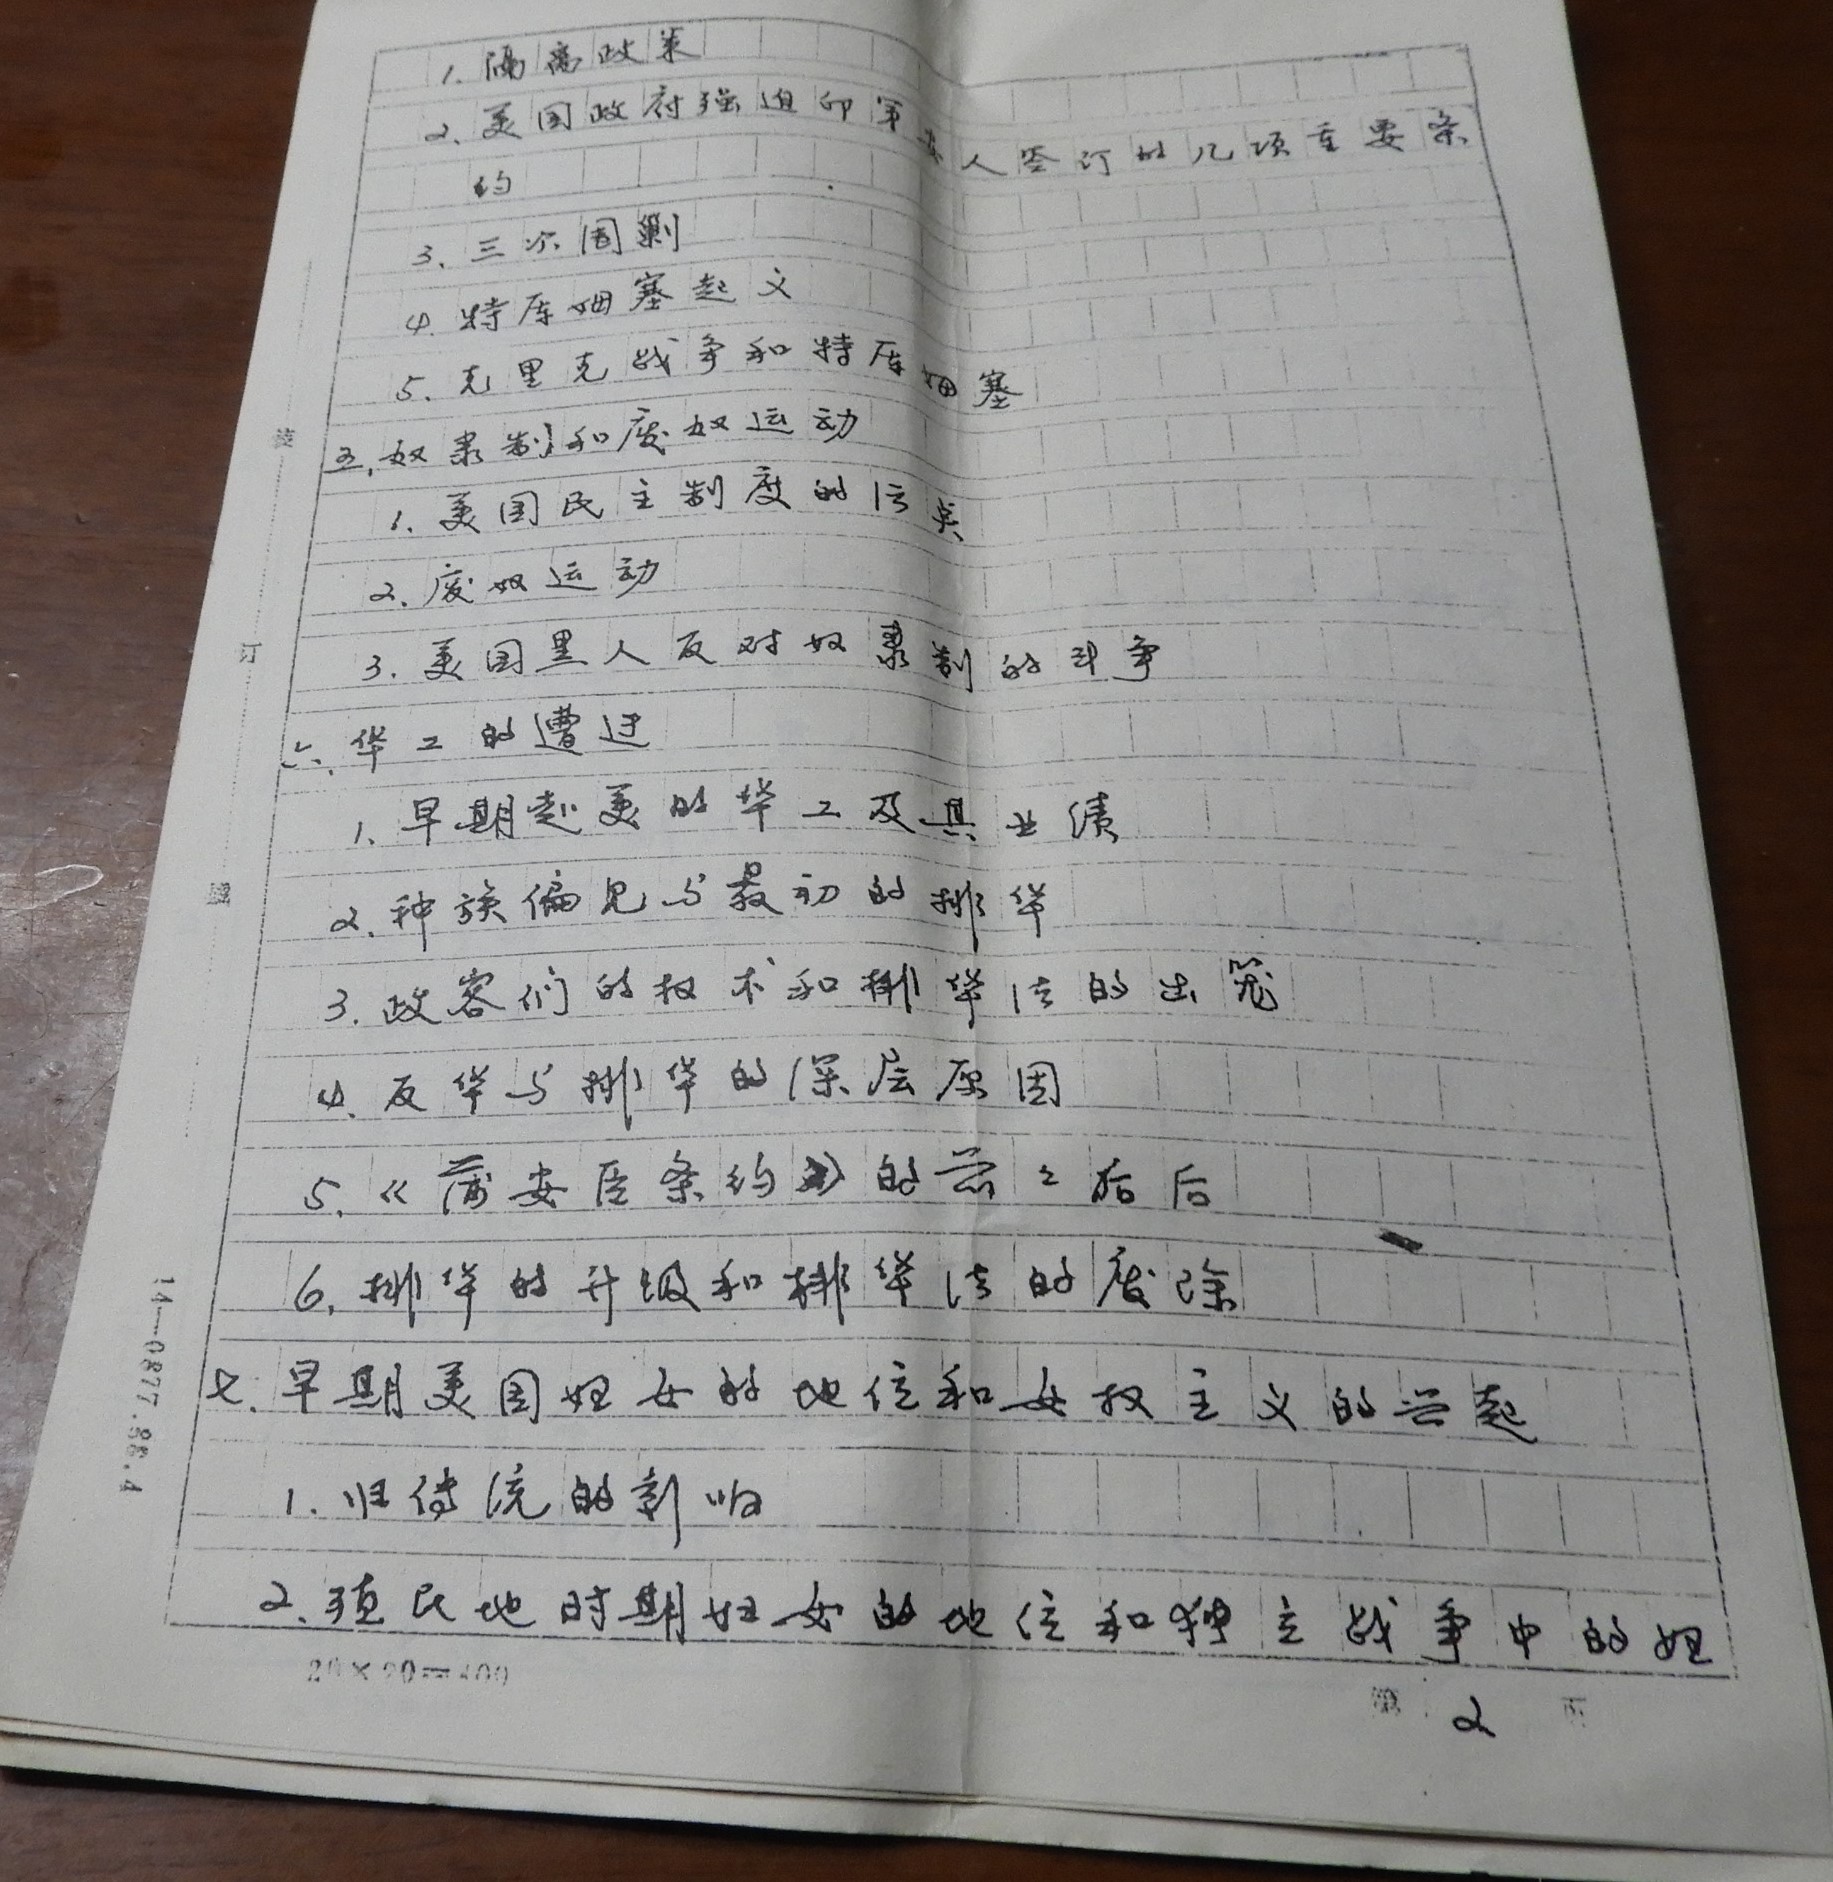 1. 隔离政策
2. 美国政府强迫印第安人签订的几项重要条
约
3. 三次围剿
4. 特库姆塞起义
5. 克里克战争和特库姆塞
五. 奴隶制和废奴运动
1. 美国民主制度的污点
2. 废奴运动
3. 美国黑人反对奴隶制的斗争
六. 华工的遭迂
1. 早期赴美的华工及其业绩
2. 种族偏见与最初的排华
3. 政客们的权术和排华法的出笼
4. 反华与排华的深层原因
5. 《蒲安臣条约》的前前后后
6. 排华的升级和排华法的废除
七. 早期美国妇女的地位和女权主义的兴起
1. 旧传统的影响
2. 殖民地时期妇女的地位和独立战争中的妇
装
订
线
14—0877.88.4
20×20=400
第 2 页